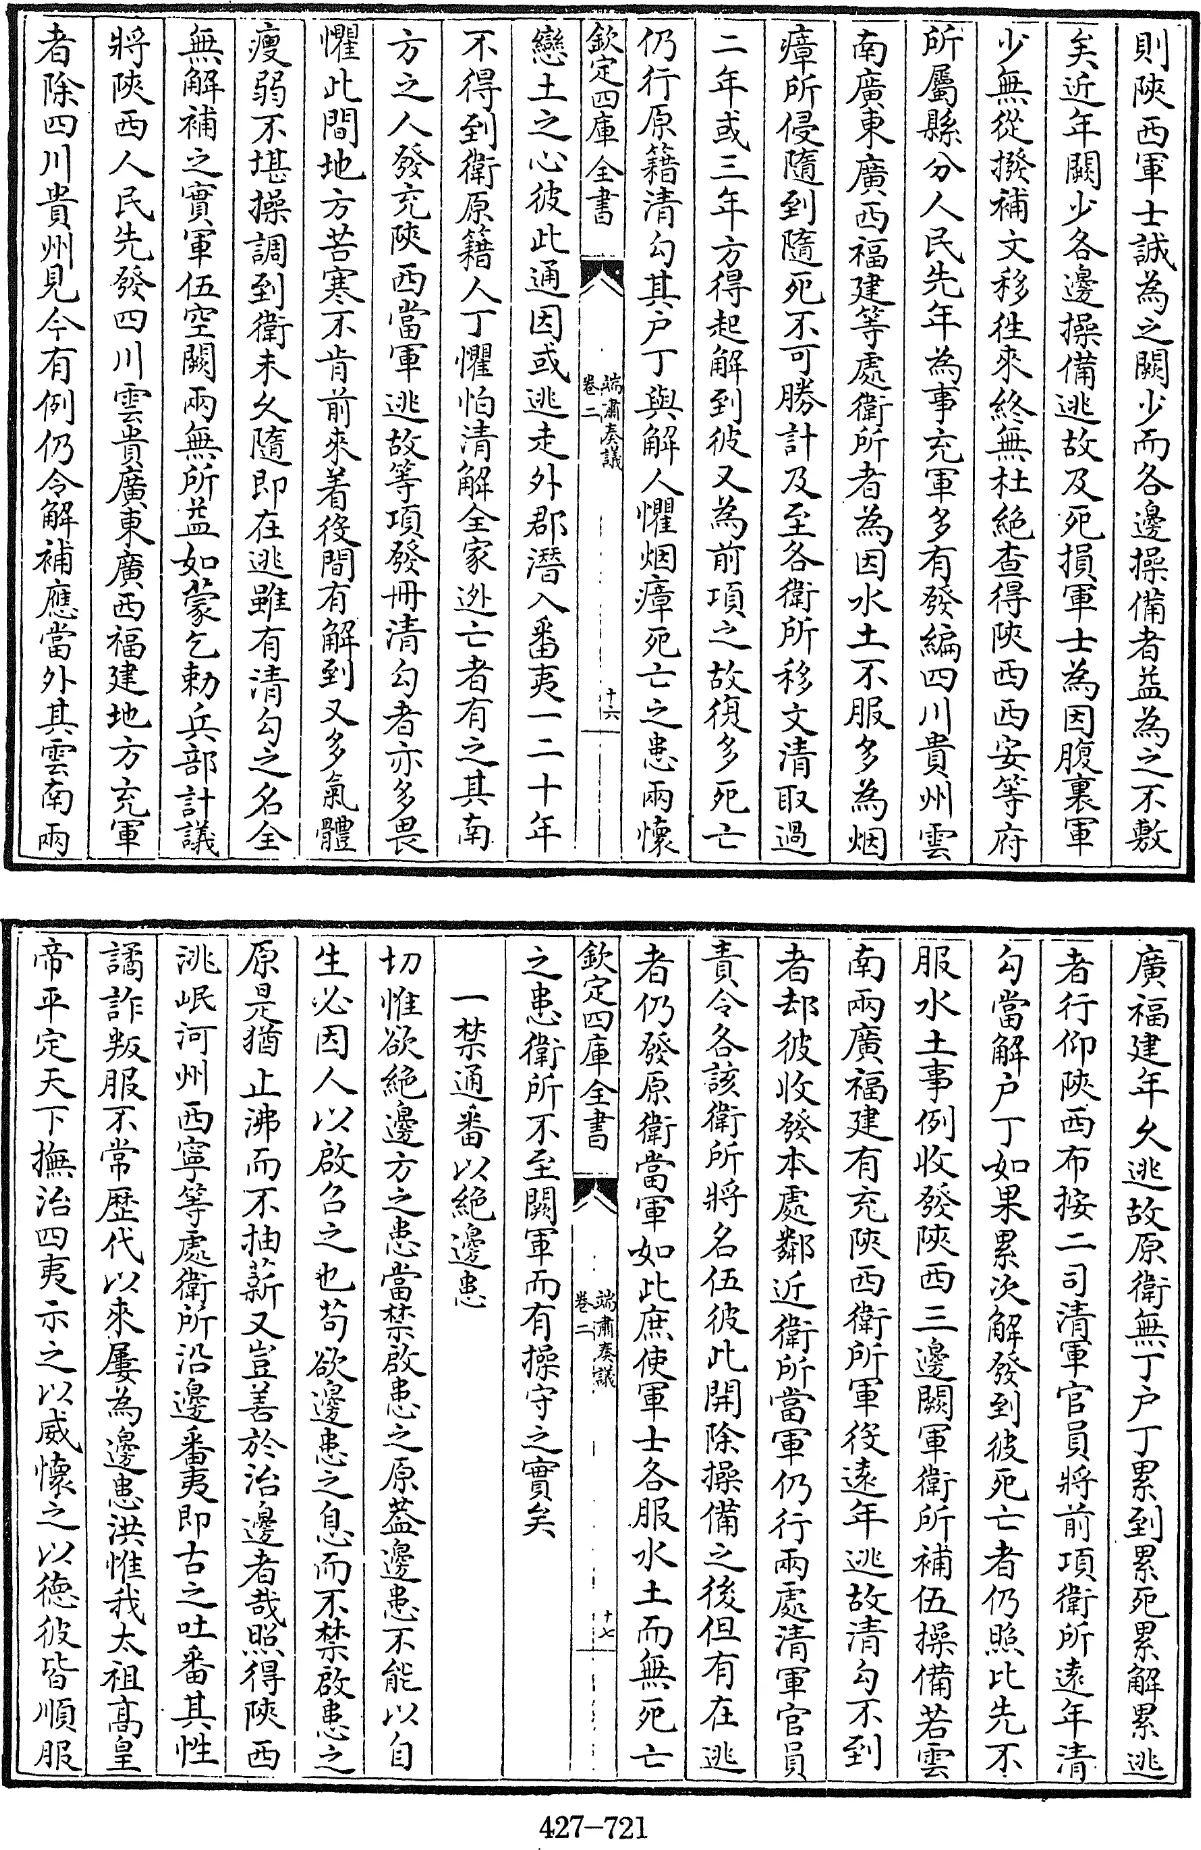 則陝西軍士誠為之闕少而各邊操備者益為之不敷
矣近年闕少各邊操備逃故及死損軍士為因腹裏軍
少無從撥補文移徃來終無杜絶查得陝西西安等府
所屬縣分人民先年為事充軍多有發編四川貴州雲
南廣東廣西福建等處衛所者為因水土不服多為烟
瘴所侵隨到隨死不可勝計及至各衛所移文清取過
二年或三年方得起解到彼又為前項之故復多死亡
仍行原籍清勾其户丁與解人懼烟瘴死亡之患兩懷
欽定四庫全書
端肅奏議
卷二
十六
戀土之心彼此通因或逃走外郡潛入番夷一二十年
不得到衛原籍人丁懼怕清解全家迯亡者有之其南
方之人發充陝西當軍逃故等項發冊清勾者亦多畏
懼此間地方苦寒不肯前來着役間有解到又多氣體
瘦弱不堪操調到衛未久隨即在逃雖有清勾之名全
無解補之實軍伍空闕兩無所益如蒙乞勅兵部計議
將陝西人民先發四川雲貴廣東廣西福建地方充軍
者除四川貴州見今有例仍令解補應當外其雲南兩
廣福建年久逃故原衛無丁户丁累到累死累解累逃
者行仰陝西布按二司清軍官員將前項衛所逺年清
勾當解户丁如果累次解發到彼死亡者仍照比先不
服水土事例收發陝西三邊闕軍衛所補伍操備若雲
南兩廣福建有充陝西衛所軍役逺年逃故清勾不到
者却彼收發本處鄰近衛所當軍仍行兩處清軍官員
責令各該衛所將名伍彼此開除操備之後但有在逃
者仍發原衛當軍如此庶使軍士各服水土而無死亡
欽定四庫全書
端肅奏議
卷二
十七
之患衛所不至闕軍而有操守之實矣
一禁通番以絶邊患
切惟欲絶邊方之患當禁啟患之原葢邊患不能以自
生必因人以啟召之也苟欲邊患之息而不禁啟患之
原是猶止沸而不抽薪又豈善於治邊者哉照得陝西
洮岷河州西寧等處衛所沿邊番夷即古之吐番其性
譎詐叛服不常歷代以來屢為邊患洪惟我太祖髙皇
帝平定天下撫治四夷示之以威懷之以德彼皆順服
427-721